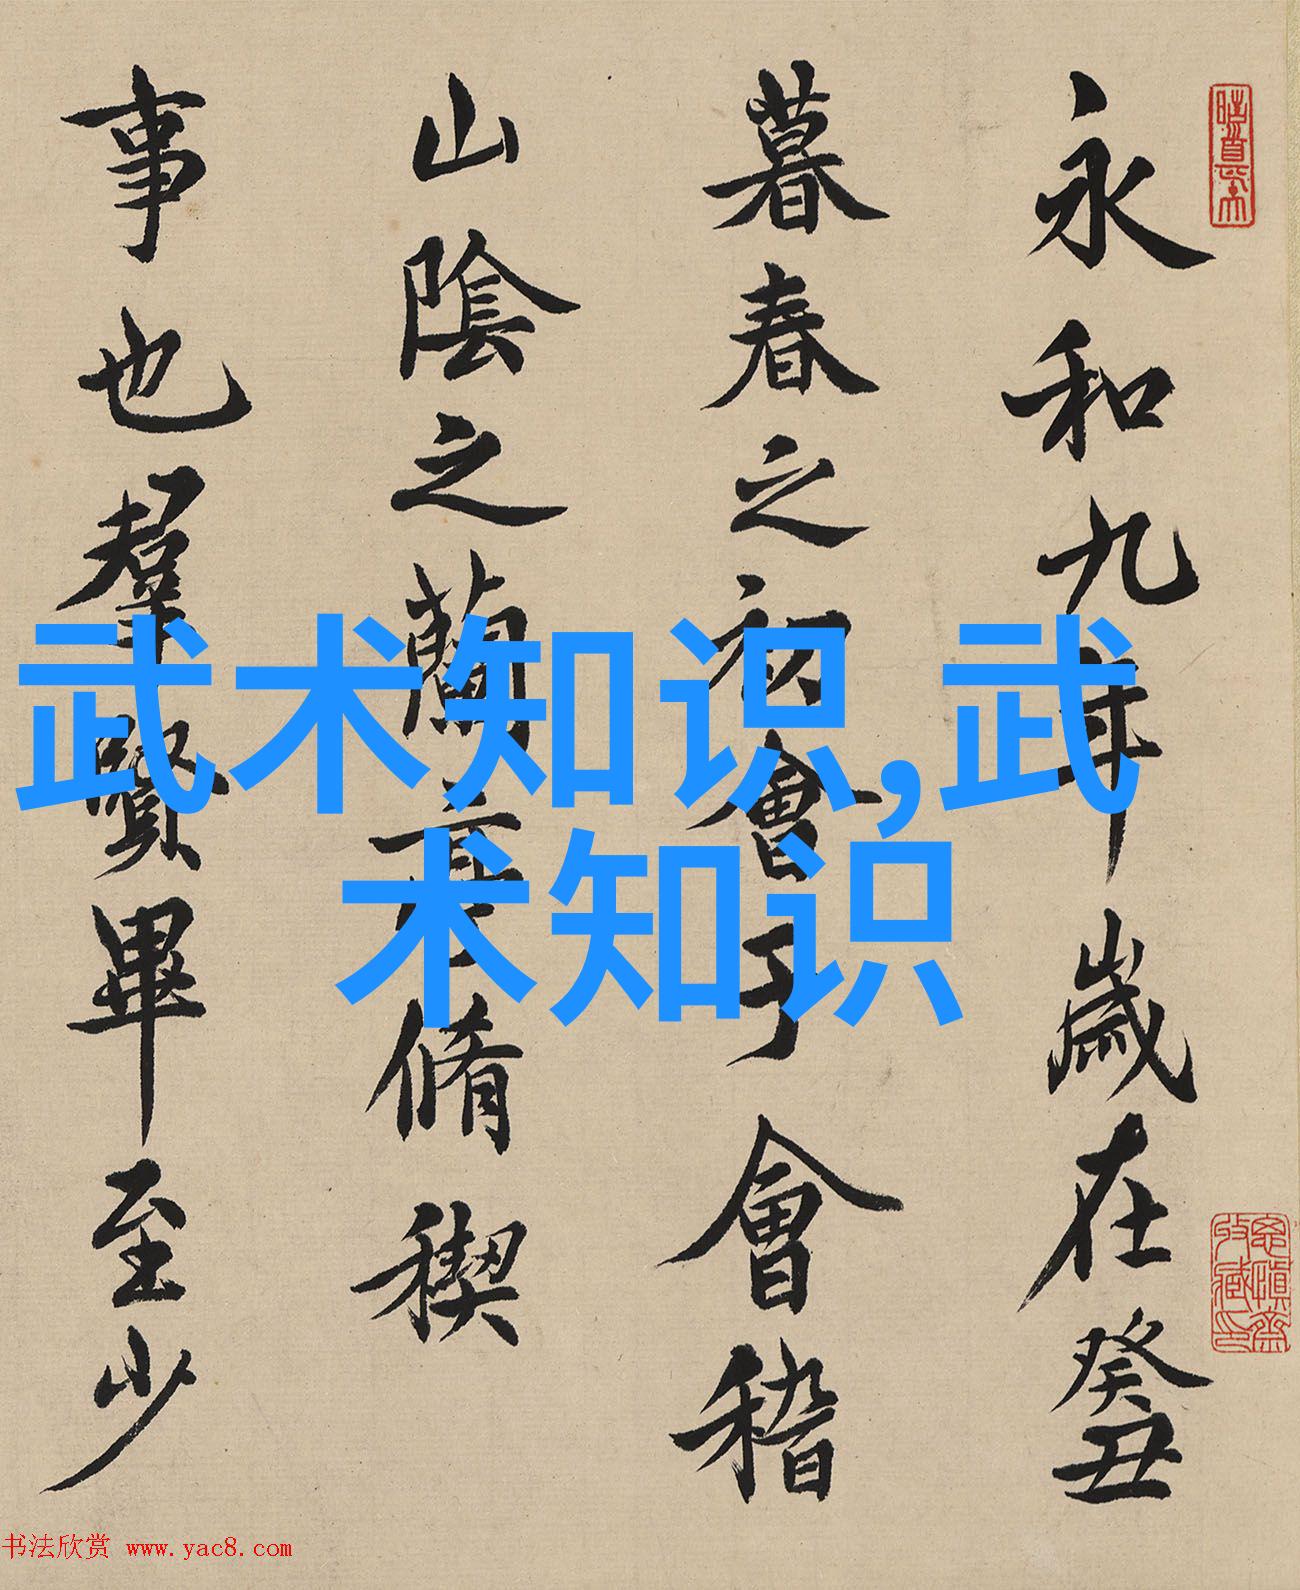 永和九年歲在癸丑
暮春之初會于會稽
山陰之蘭亭脩稧
事也羣賢畢至少
武术知识,武
术知识
书法欣赏 www.yac8.com